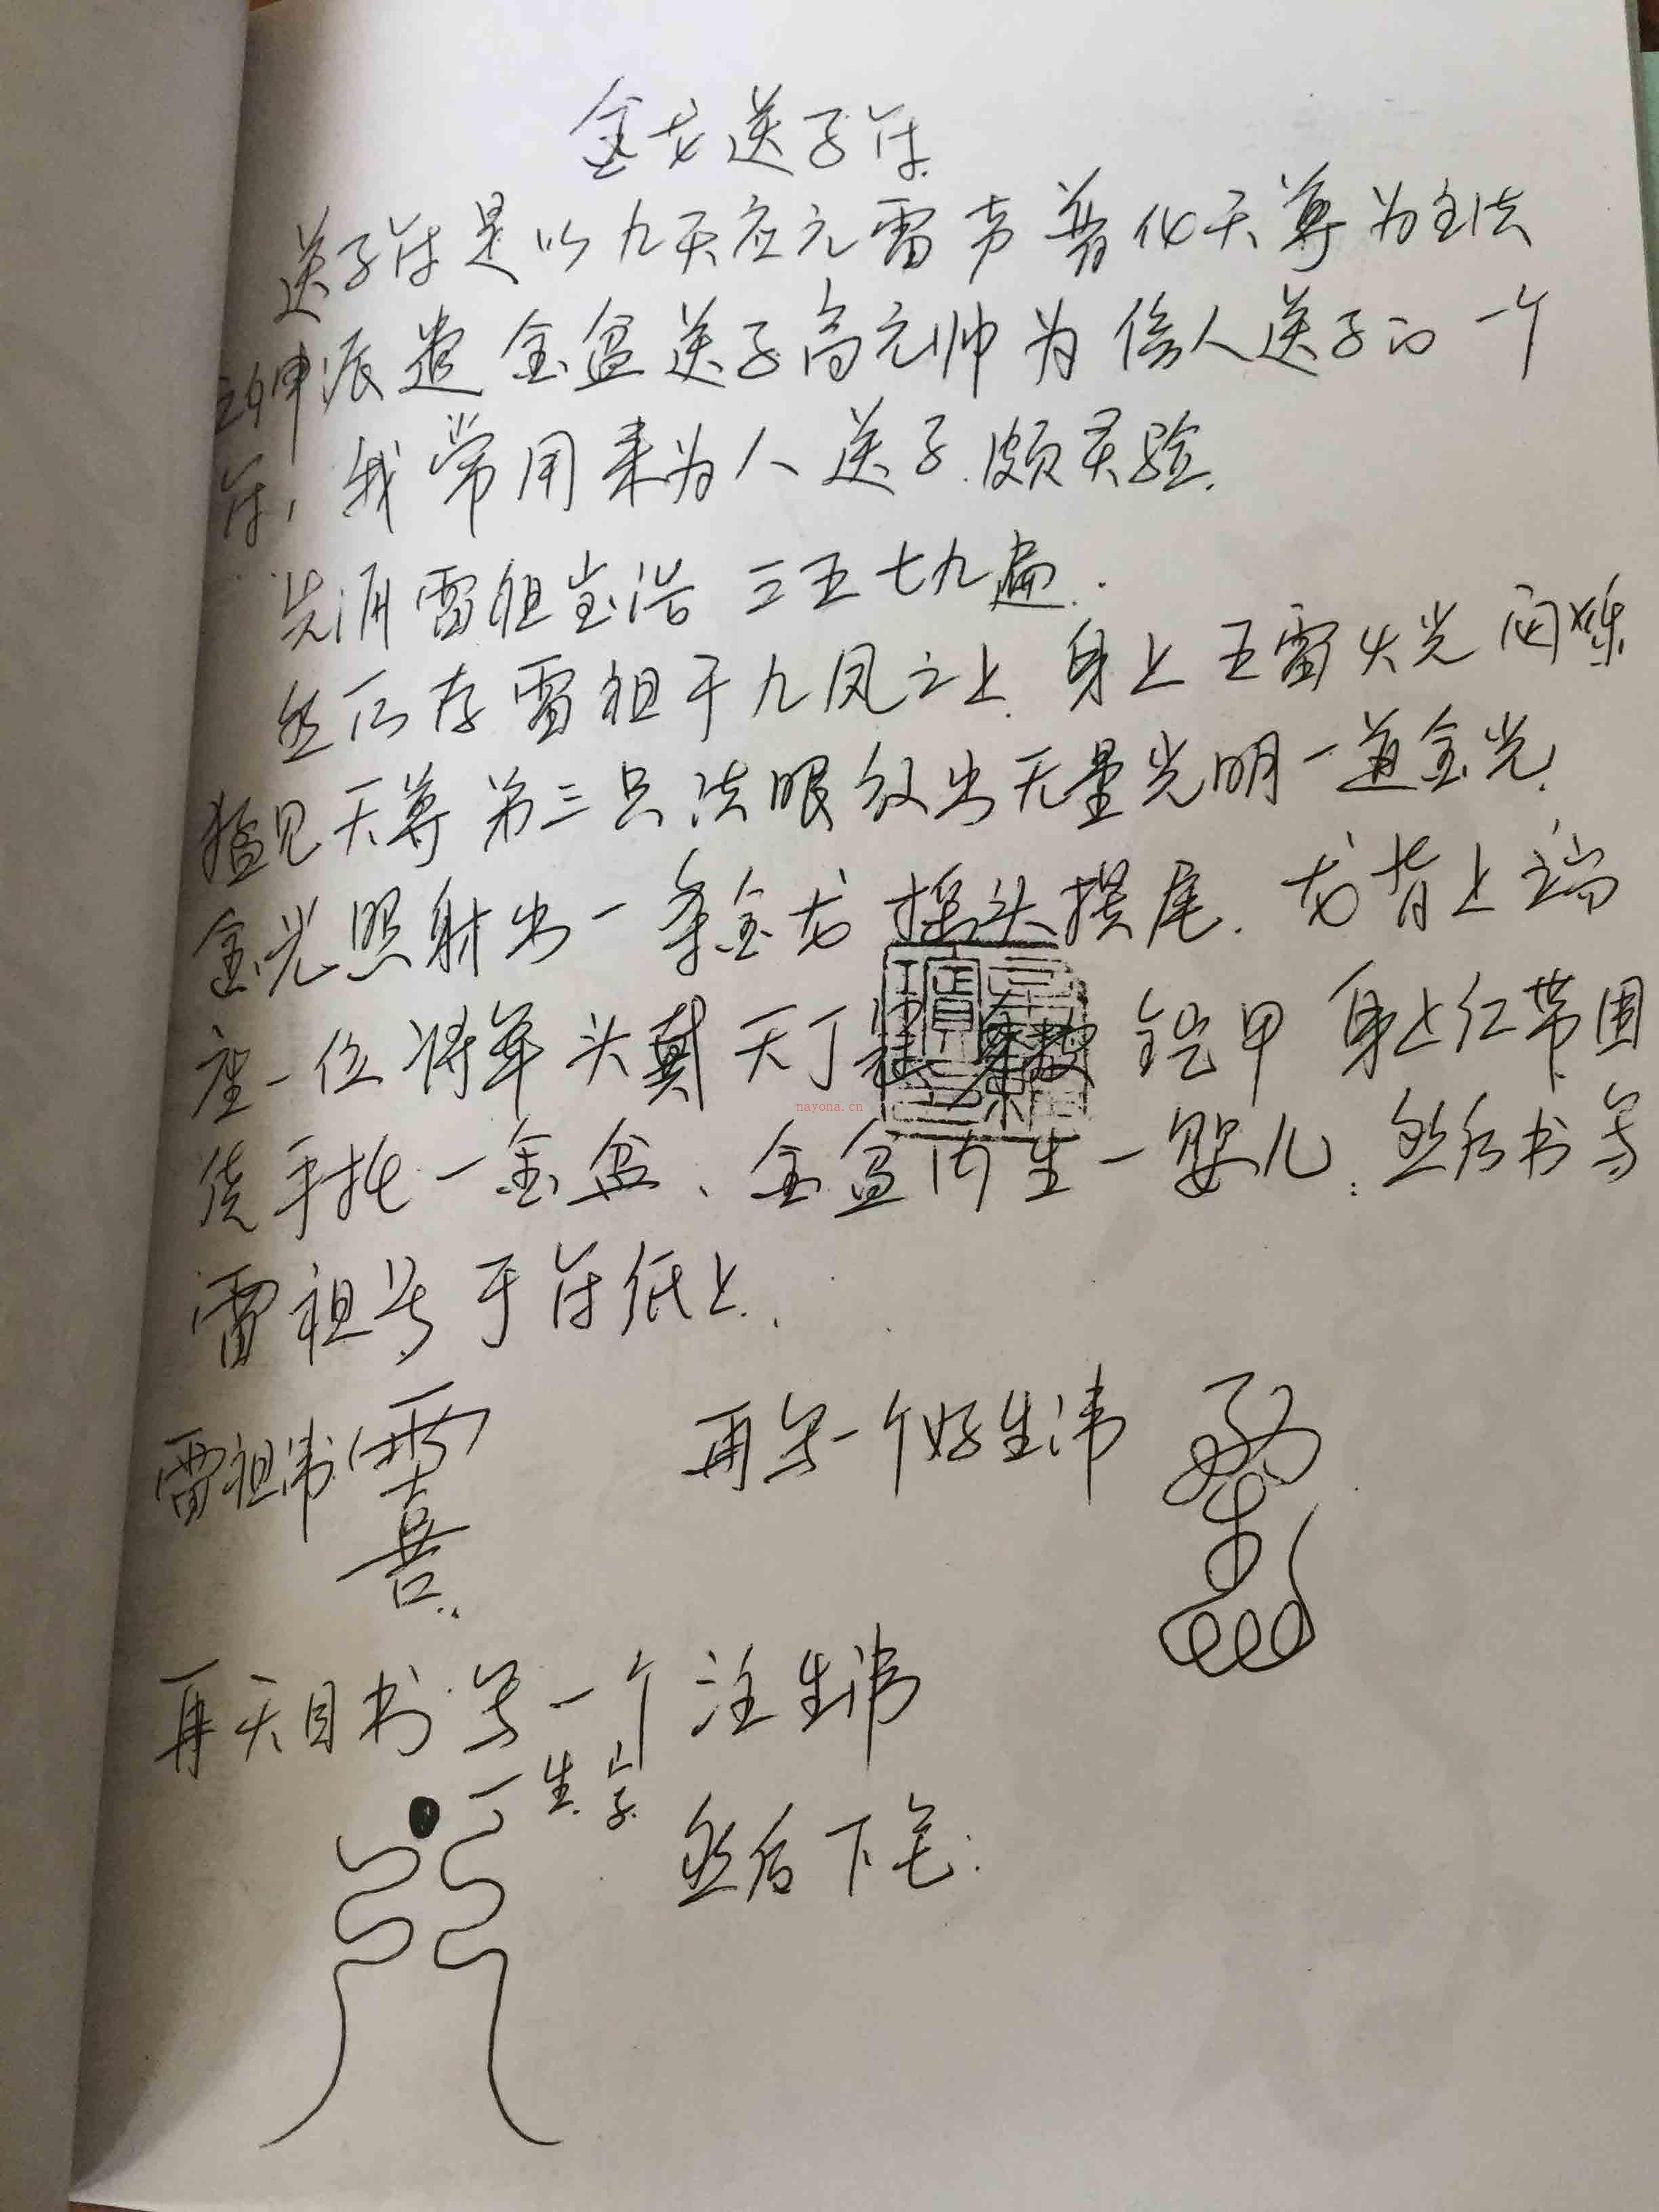 金龙送子符
送子符是以九天应元雷声普化天尊为主法
主神派遣金盆送子高元帅为信人送子的一个
符，我常用来为人送子.颇灵验.
先诵雷祖宝诰 三五七九遍.
然后存雷祖于九凤之上.身上五雷火光闪烁
猛见天尊第三只法眼放出无量光明一道金光.
金光照射出一条金龙摇头摆尾.龙背上端
座一位将军头戴天丁冠 身披铠甲 身上红带围
绕手托一金盆、金盆内生一婴儿.然后书写
雷祖号于符纸上.
雷祖讳
再写一个好生讳
再天目书写一个注生讳
一生字
然后下笔:
nayona.cn